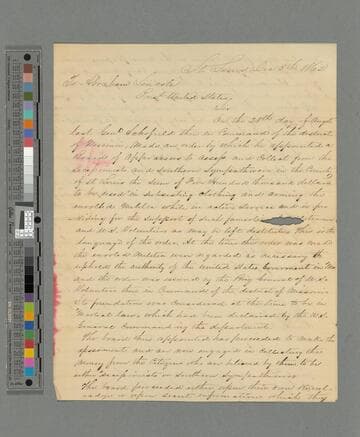 St Louis Dec 5th 1862
To Abraham Lincoln
Prest United States,
Sir
On the 28th day of August
last Genl Schofield then in Command of the district
of Missouri, Made an order by which he appointed a
Board of Assessors to assess and Collect from the
secessionists and Southern Sympathisers in the County
of St Louis the Sum of Five Hundred thousand dollars
to be used in subsisting clothing and arming the
enrolled Militia while in active Service and in pro
viding for the support of such families
and U.S. Volunteers as may be left destitute this is the
language of the order. At the time this order was made
the enrolled Militia were regarded as necessary to
uphold the authority of the United States Government in Mo
and the order was issued by the
Volunteers then in Command of the district of Missouri
Its foundation was Considered at the time to be in
Martial law which had been declared by the U.S.
General Commanding the department.
The board thus appointed has proceeded to make the
assessment and are now engaged in Collecting this
money from the Citizens who are believed by them to be
either Secessionists or Southern Sympathisers.
The board proceeded either upon their own Knowl
edge or upon secret information which they